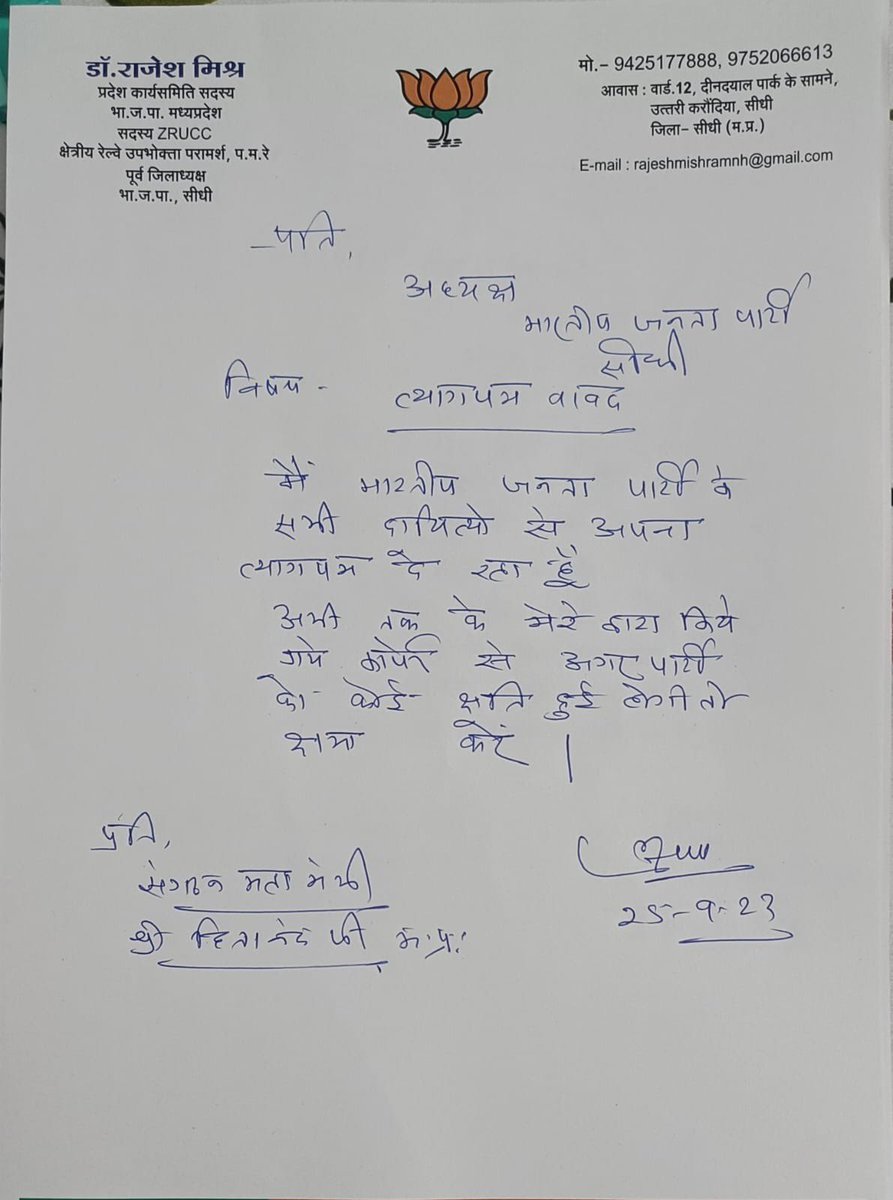 डॉ.राजेश मिश्र
प्रदेश कार्यसमिति सदस्य
भा.ज.पा. मध्यप्रदेश
सदस्य ZRUCC
क्षेत्रीय रेल्वे उपभोक्ता परामर्श, प.म.रे
पूर्व जिलाध्यक्ष
भा.ज.पा., सीधी
मो.– 9425177888, 9752066613
आवास : वार्ड.12, दीनदयाल पार्क के सामने,
उत्तरी करौंदिया, सीधी
जिला– सीधी (म.प्र.)
E-mail : rajeshmishramnh@gmail.com
प्रति,
अध्यक्ष
भारतीय जनता पार्टी
सीधी
विषय - त्यागपत्र वावद
मैं भारतीय जनता पार्टी के
सभी दायित्वो से अपना
त्यागपत्र दे रहा हूँ
अभी तक के मेरे द्वारा किये
गये कार्यो से अगर पार्टी
को कोई क्षति हुई होगी तो
क्षमा करें |
प्रति,
संगठन महा मंत्री
श्री हितानंद जी म.प्र.
25-9-23